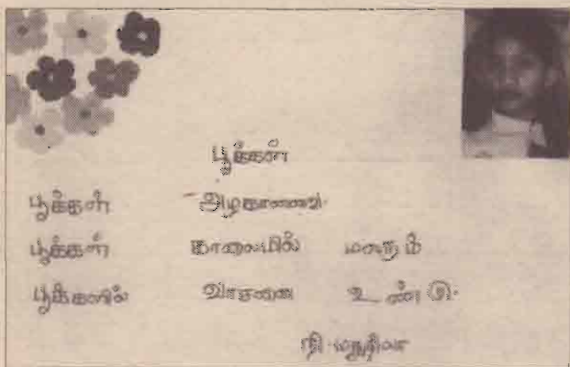 பூக்கள்
பூக்கள் அழகானவை.
பூக்கள் காலையில் மலரும்
பூக்களில் வாசனை உண்டு.
நி. மதுநிலா